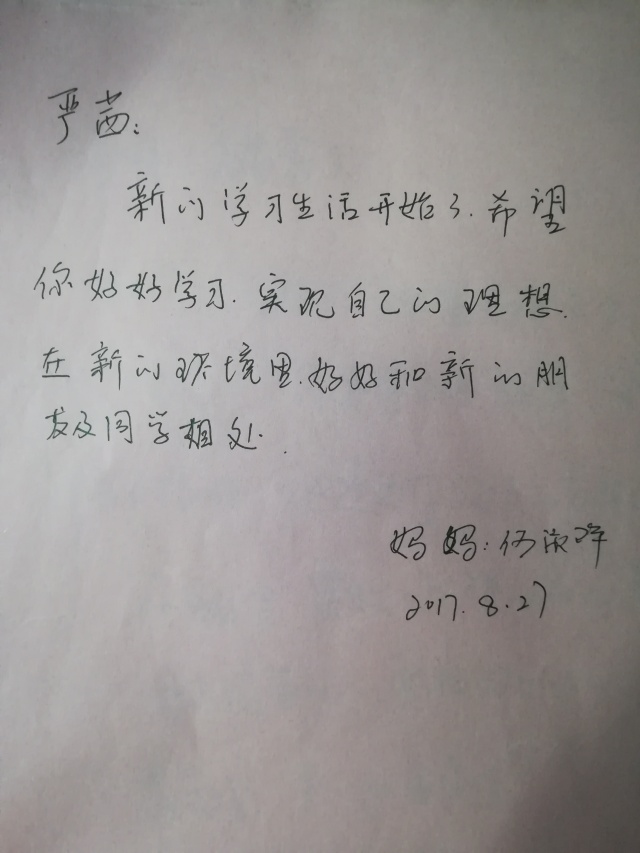 严茜：
新的学习生活开始了.希望
你好好学习.实现自己的理想.
在新的环境里.好好和新的朋
友及同学相处.
妈妈：何淑
2017.8.27